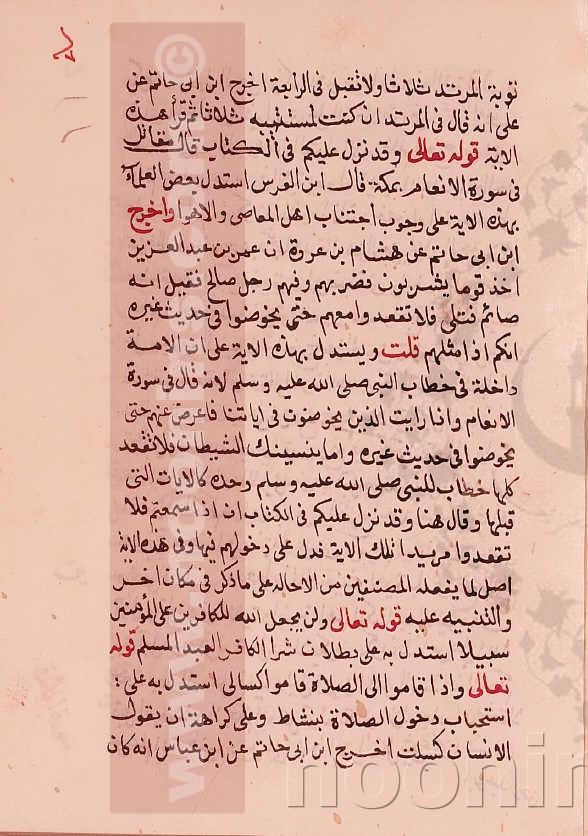 توبة المرتد ثلاثا ولا تقبل فى الرابعة اخرج ابن ابى حاتم عن
على انه قال فى المرتد ان كنت لمستتيبه ثلاثا ثم قرأ هذه
الاية قوله تعالى وقد نزل عليكم فى الكتاب قال مقاتل
فى سورة الانعام بمكة قال ابن الفرس استدل بعض العلماء
بهذه الاية على وجوب اجتناب اهل المعاصى والاهوا واخرج
ابن ابى حاتم عن هشام بن عروة ان عمر بن عبد العزيز
اخذ قوما يشربون فضربهم وفيهم رجل صالح فقيل انه
صائم فتلى فلا تقعدوا معهم حتى يخوضوا فى حديث غيره
انكم اذا مثلهم قلت ويستدل بهذه الاية على ان الامة
داخلة فى خطاب النبى صلى الله عليه وسلم لانه قال فى سورة
الانعام واذا رايت الذين يخوضون فى اياتنا فاعرض عنهم حتى
يخوضوا فى حديث غيره واما ينسينك الشيطان فلا تقعد
كلها خطاب للنبى صلى الله عليه وسلم وحده كالايات التى
قبلها وقال هنا وقد نزل عليكم فى الكتاب ان اذا سمعتم فلا
تقعدوا مريدا تلك الاية فدل على دخولهم فيها وفى هذه الاية
اصل لما يفعله المصنفين من الاحالة على ما ذكر فى مكان اخر
والتنبيه عليه قوله تعالى ولن يجعل الله للكافرين على المؤمنين
سبيلا استدل به على بطلان شرا الكافر العبد المسلم قوله
تعالى واذا قاموا الى الصلاة قاموا كسالى استدل به على :
استحباب دخول الصلاة بنشاط وعلى كراهة ان يقول
الانسان كسلت اخرج ابن ابى حاتم عن ابن عباس انه كان
noonin